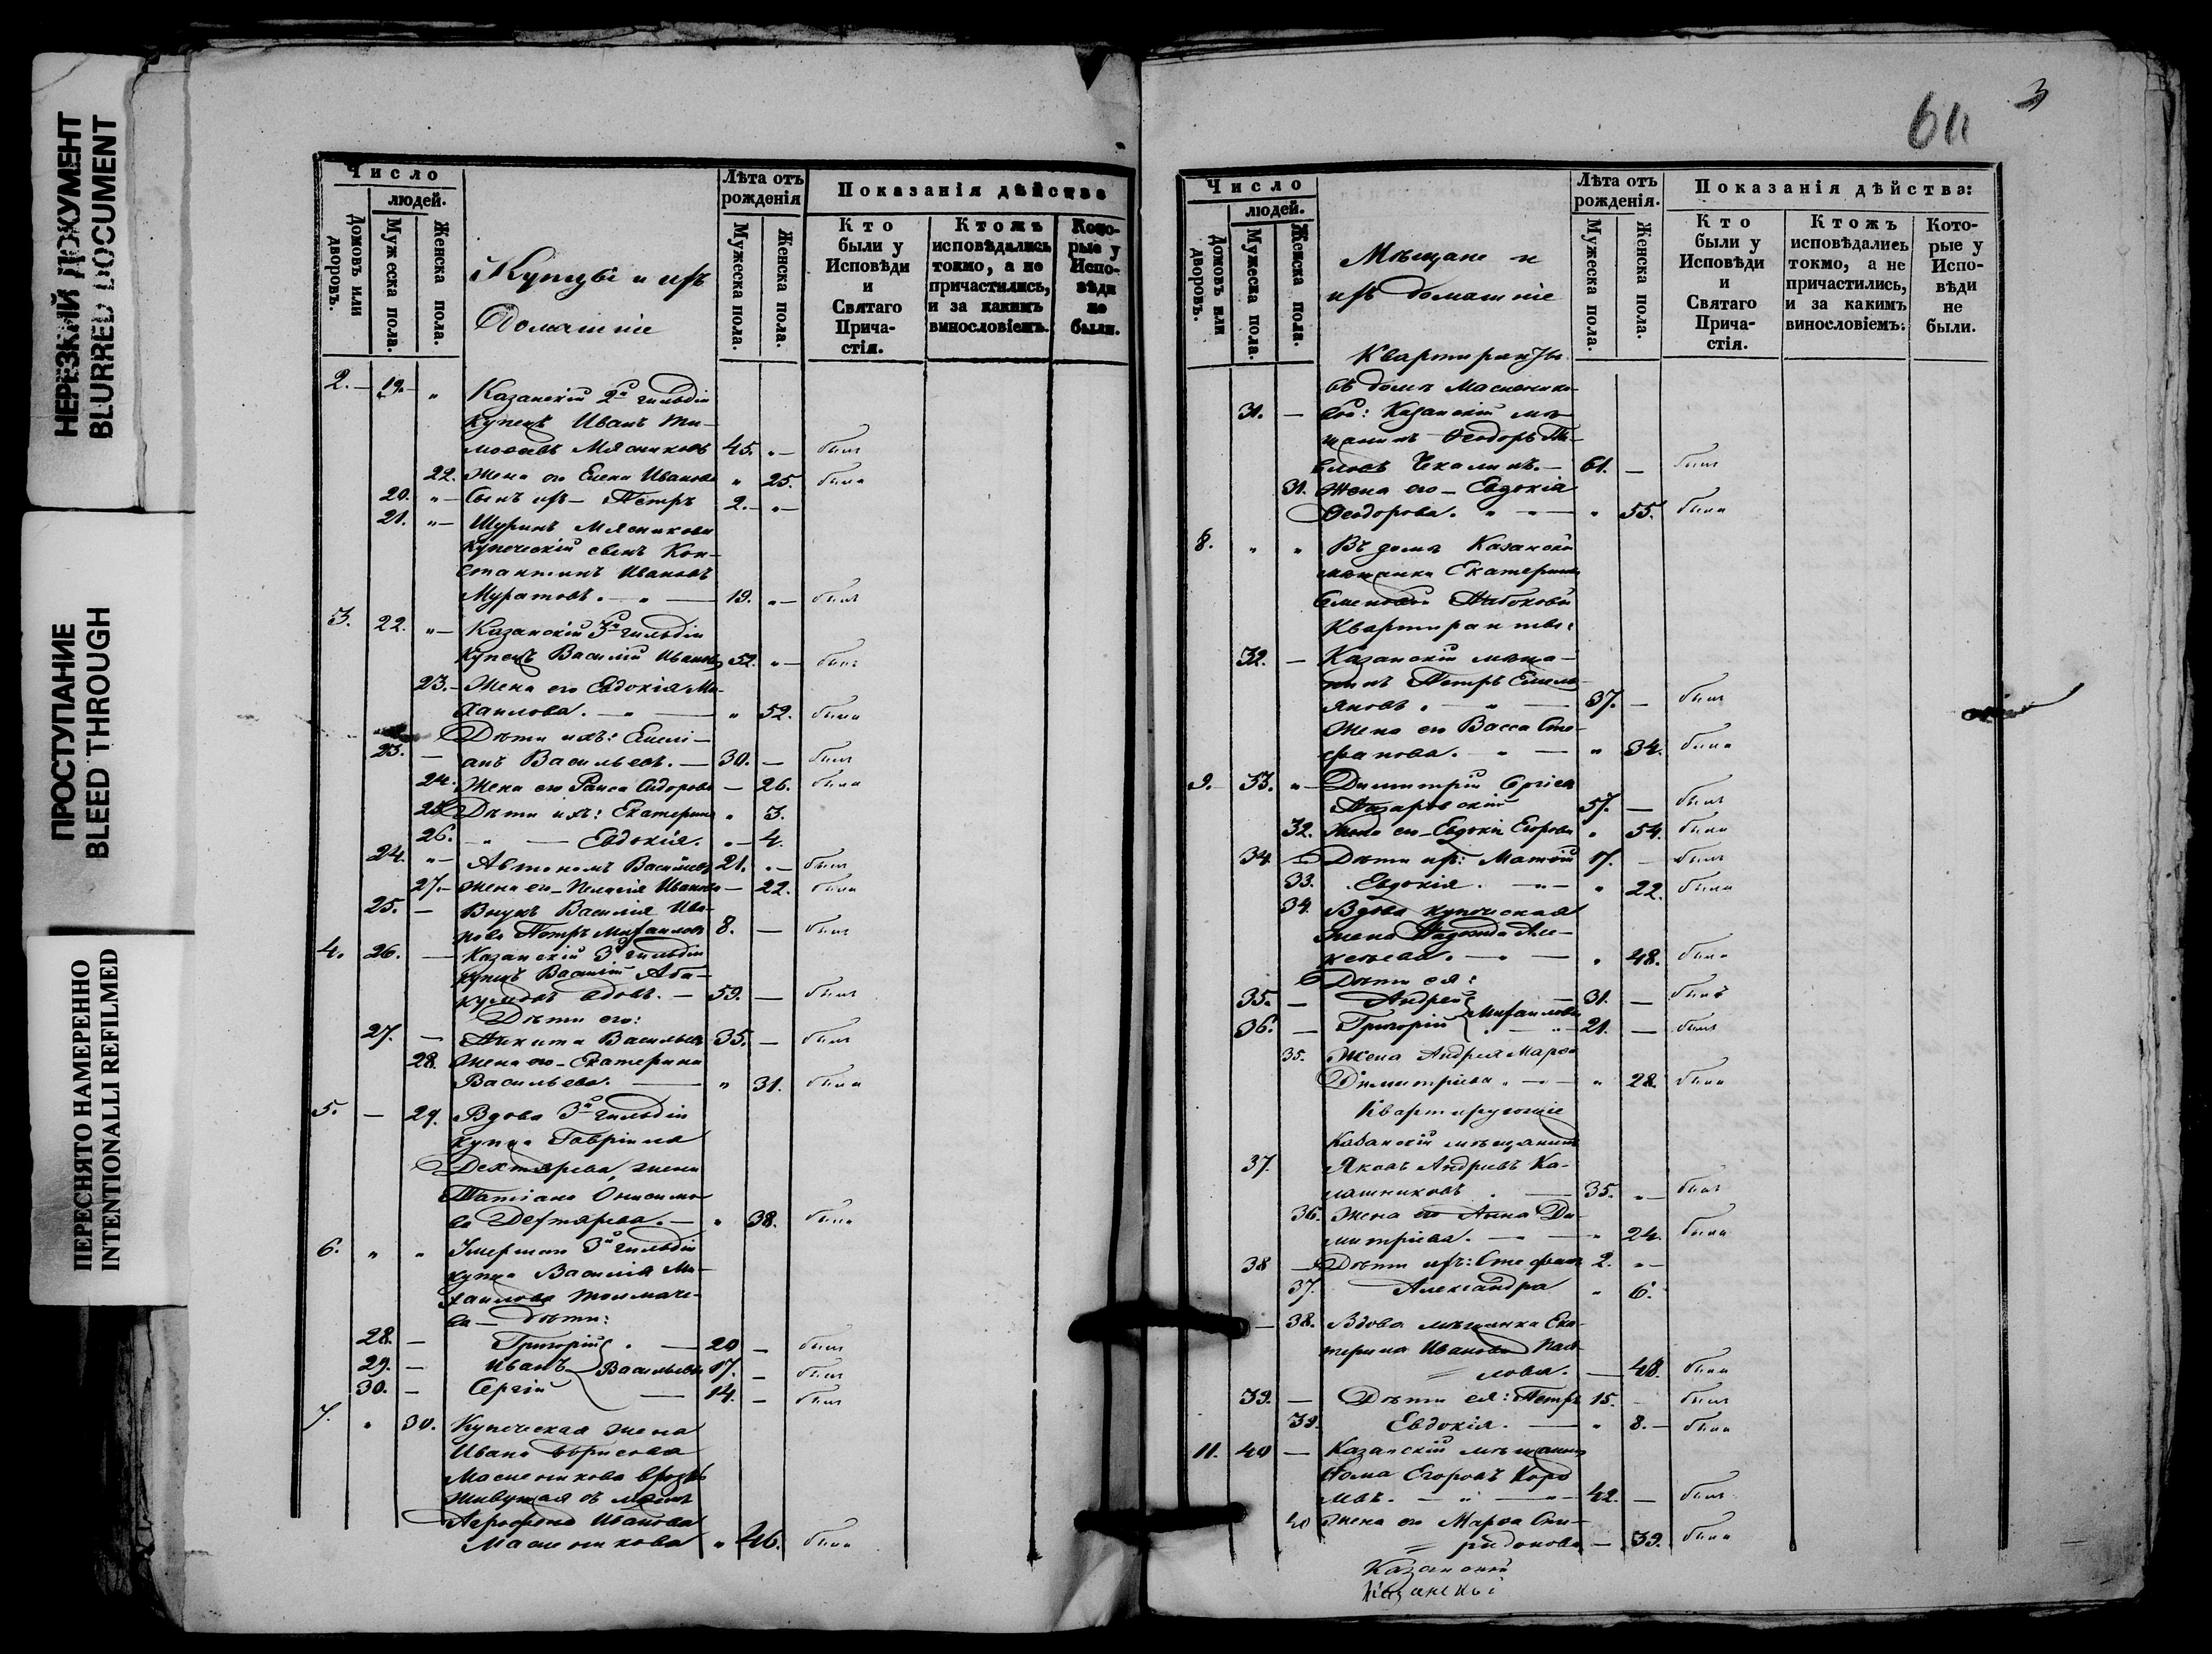 НЕРЕЗКИЙ ДОКУМЕНТ
BLURRED DOCUMENT
ПРОСТУПАНИЕ
BLEED THROUGH
ПЕРЕСНЯТО НАМЕРЕННО
INTENTIONALLI REFILMED
Число
людей.
Домовъ или дворовъ.
Мужеска пола.
Женска пола.
Купцы и ихъ
Домашніе
Лѣта отъ рожденія
Мужеска пола.
Женска пола.
Показанія дѣйства
Кто были у Исповѣди и Святаго Прича-стія.
Ктожъ исповѣдались токмо, а не причастились, и за какимъ винословіемъ.
Кото-рые у Испо-вѣди не были.
2. — 19. " Казанскій 2й гильдіи
купецъ Иванъ Ти-
мофѣевъ Мясниковъ 45. " — былъ
22. Жена его Елена Иванова " 25. была
20. " — Сынъ ихъ — Петръ 2. " —
21. " — Шуринъ Мясникова
купеческій сынъ Кон-
стантинъ Ивановъ
Муратовъ. — " — 19. " — былъ
3. 22. " — Казанскій 3й гильдіи
купецъ Василій Ивановъ 52. " — былъ
23. — Жена его Евдокія Ми-
хаилова. — " — " 52. была
Дѣти ихъ: Емелі-
23. — анъ Васильевъ. — 30. — былъ
24. Жена его Раиса Сидорова — 26. была
25. Дѣти ихъ: Екатерина " 3.
26. " — Евдокія. " — 4.
24. " — Автономъ Васильевъ 21. " — былъ
27. — Жена его — Пелагія Иванова — 22. была
25. — Внукъ Василія Ива-
нова Петръ Михаиловъ 8. — былъ
4. 26. — Казанскій 3й гильдіи
купецъ Василій Аба-
кумовъ — 59. — былъ
Дѣти его:
27. — Никита Васильевъ 35. — былъ
28. Жена его — Екатерина
Васильева. — " 31. была
5. — 29. Вдова 3й гильдіи
купца Гавріила
Дехтярева, жена
Татіана Онисимо-
ва Дехтярева. — " 38. была
6. " " Умершаго 3й гильдіи
купца Василія Ми-
хаилова Толмаче-
ва — дѣти:
28. — Григорій " — 20 — былъ
29. — Иванъ Васильевы 17. — былъ
30. — Сергій — 14. — былъ
7. " 30. Купеческая жена
Ивана Борисова
Масленикова врозь
живущая съ мужемъ
Ивановa
Масленикова " 46. была
3
Число
людей.
Домовъ или дворовъ.
Мужеска пола.
Женска пола.
Мѣщане и
ихъ домашніе
Лѣта отъ рожденія.
Мужеска пола.
Женска пола.
Показанія дѣйства:
Кто были у Исповѣди и Святаго Прича-стія.
Ктожъ исповѣдались токмо, а не причастились, и за какимъ винословіемъ.
Кото-рые у Испо-вѣди не были.
Квартиранты
въ домѣ Маслянико-
31. — вой: Казанскій мѣ-
щанинъ Ѳеодоръ Па-
вловъ Чекалинъ. — 61. — былъ
31. Жена его — Евдокія
Ѳеодорова. " " — " 55. была
8. " " Въ домѣ Казанской
мѣщанки Екатерины
Семеновой Набоковой
Квартиранты:
32. — Казанскій мѣща-
нинъ Петръ Емель-
яновъ. " — 37. — былъ
Жена его Васса Сте-
фанова. " — " 34. была
9. 33. " — Димитрій Сергіевъ
Назаровскій 57. — былъ
32. Жена его — Евдокія Егорова " 54. была
34. — Дѣти ихъ: Матвій 17. — былъ
33. Евдокія. — " — " 22. была
34. Вдова купеческая
жена Надежда Але-
ксѣева. — " — " 48. была
Дѣти ея:
35. — Андрей — 31. — былъ
Михаиловы
36. — Григорій " — 21. — былъ
35. Жена Андрея Марѳа
Димитріева " — " 28. была
Квартирующіе
Казанскій мѣщанинъ
37. Яковъ Андреевъ Ка-
лашниковъ. — 35. " — былъ
36. Жена его Анна Ди-
митріева. — " 24. была
38 — Дѣти ихъ: Стефанъ 2. " —
37. Александра " 6.
— 38. Вдова мѣщанка Ека-
терина Иванова Пав-
лова. — 48. была
39. — Дѣти ея: Петръ 15. — былъ
39. Евдокія. — " 8. — была
11. 40 — Казанскій мѣщанинъ
Ѳома Егоровъ
— " — 42. — былъ
40 Жена его Марѳа Спи-
ридонова — 39. была
Казанскій
Казанскы